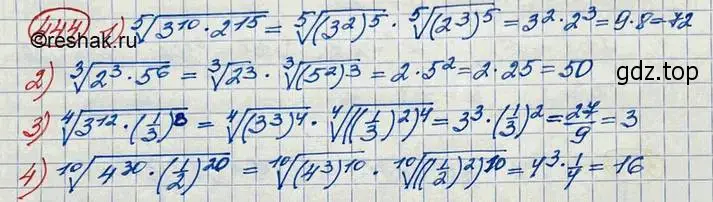 444 1) ⁵√(3¹⁰ · 2¹⁵) = ⁵√((3²)⁵) · ⁵√((2³)⁵) = 3² · 2³ = 9 · 8 = 72
©reshak.ru
2) ³√(2³ · 5⁶) = ³√(2³) · ³√((5²)³) = 2 · 5² = 2 · 25 = 50
gdz.top
3) ⁴√(3¹² · (1/3)⁸) = ⁴√((3³)⁴) · ⁴√(((1/3)²)⁴) = 3³ · (1/3)² = 27/9 = 3
4) ¹⁰√(4³⁰ · (1/2)²⁰) = ¹⁰√((4³)¹⁰) · ¹⁰√(((1/2)²)¹⁰) = 4³ · 1/4 = 16